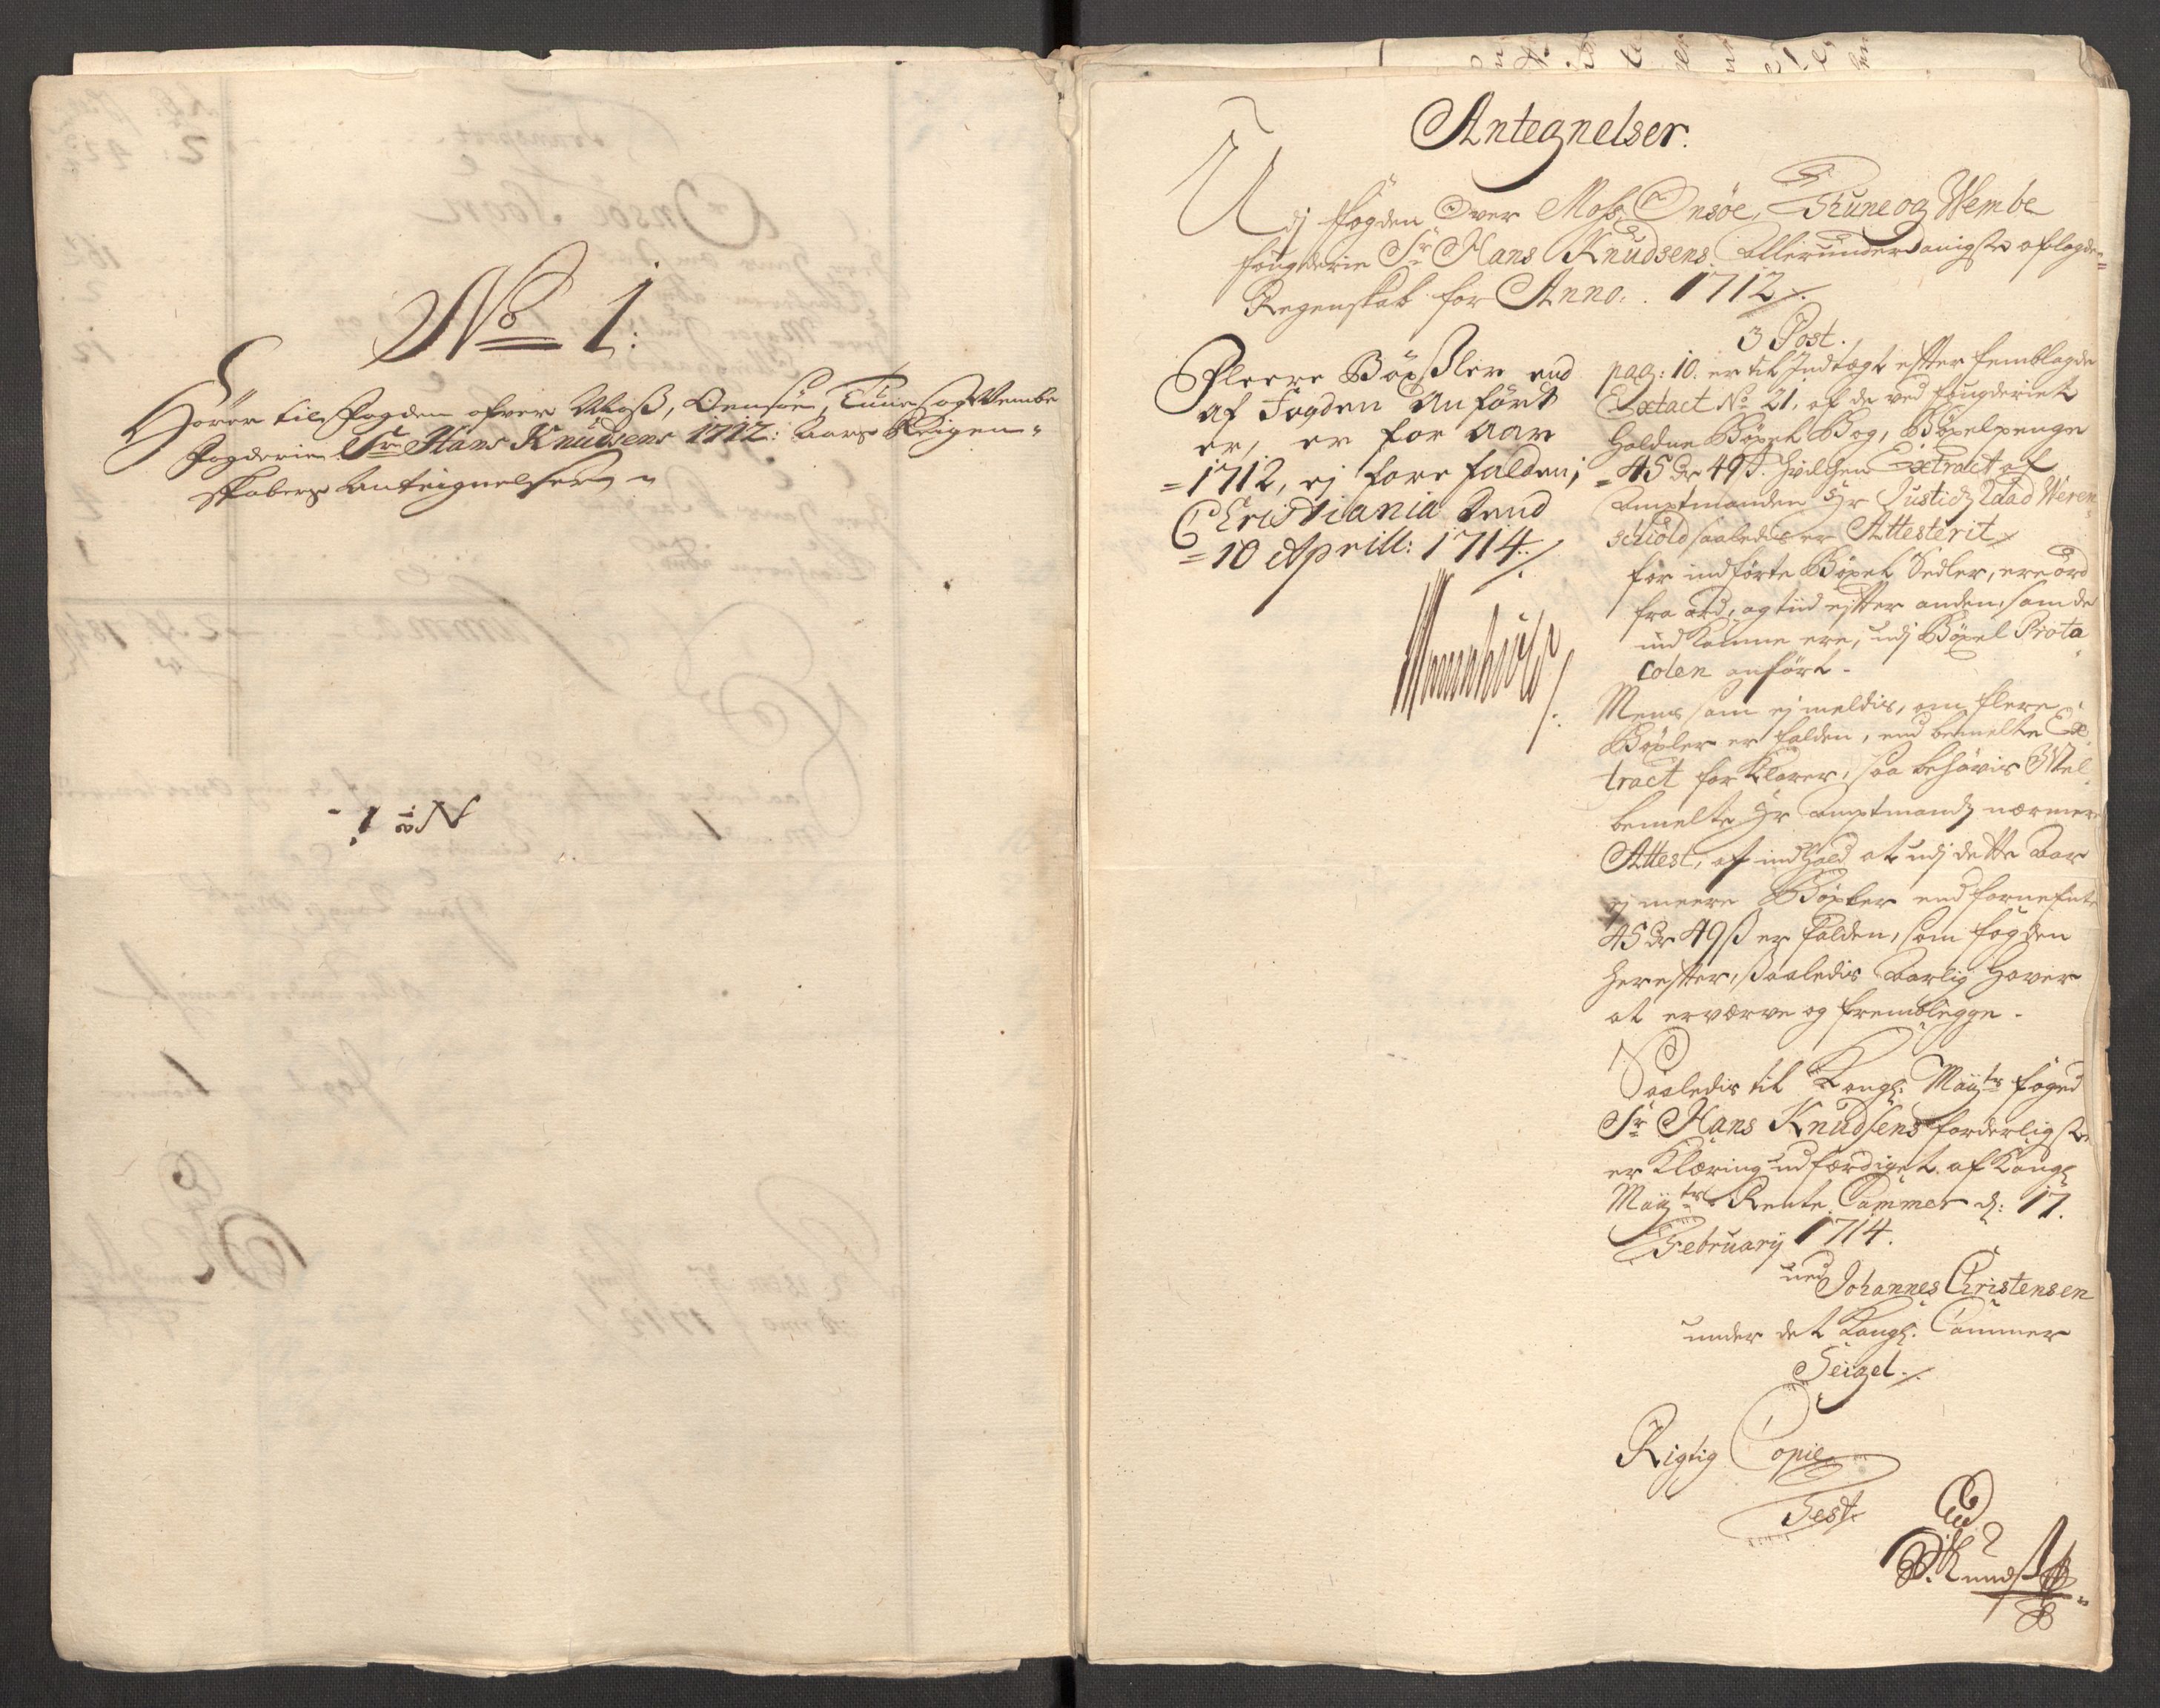 No 1:
Hörer til Fogden ofver Moß, Onsöe, Tune, og Wembe
Fogderie Sr. Hans Knudsens 1712: Aars Reigen-
skabers Anteignelser
No 1
Antegnelser.
Udj Fogden Over Moss, Onsöe, Thune og Wembe
fougderie Sr Hans Knudsens Allerunderdanigste aflagde
Regenskab for Anno. 1712
Fleere Böxsler end
af Fogden Anfört
er, er for Aar
1712, ej forefalden;
Christiania dend
10 Aprill: 1714
3 Post.
pag: 10. er til Indtægt efter femblagde
Extact No 21. af de ved fougderiet
holdne Böxel Bog, Böxelpenge
45 dr 49 s. hvilchen Extract af
Amptmanden Hr Justidz Raad Weren
schiold saaledis er Attesterit
for indförte Böxel Sedler, ere ord
fra ord, og tiid efter anden, som de
ind komne ere, udj Böxel Proto
colen anfört.
Mens som ej meldis, om flere
Böxler er falden, end bemelte Ex
tract forklarer, saa behövis Wel
bemelte Hr Amptmandz nærmere
Attest, af indhold at udj dette Aar
ej meere Böxler end fornefnte
45 dr 49 s er falden, som fogden
herefter, saaledis Aarlig haver
at erværve og fremblegge.
Saaledis til Kongl: Mayts foged
Sr Hans Knudsens forderligste
erklæring udferdiget af Kongl
Mayts Rente Cammer d: 17.
February 1714.
Johannes Christensen
under det Kongl: Cammer
Seigel.
Rigtig Copie
Test.